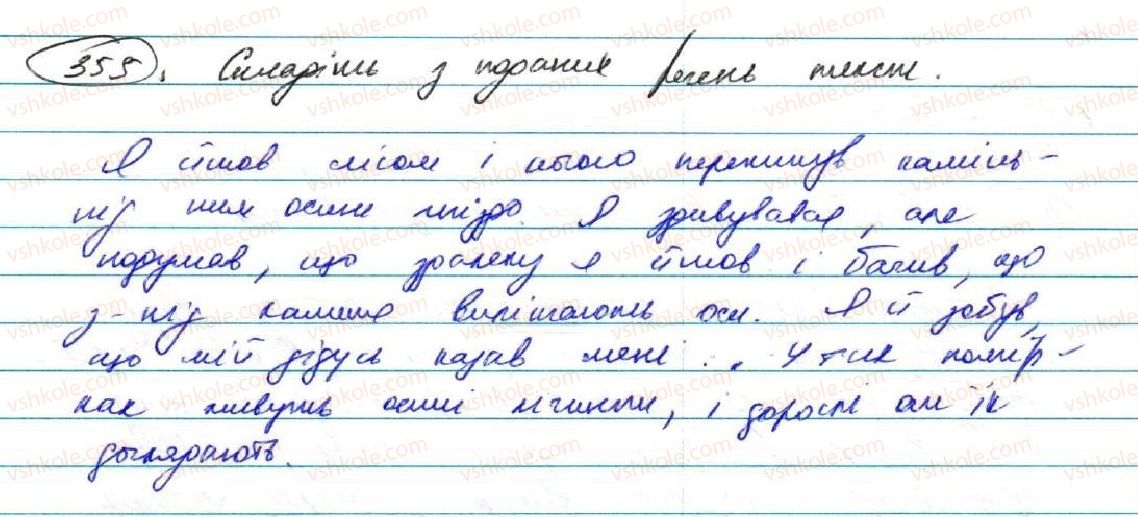 355. Складіть з поданих речень текст.
Я йшов лісом і нього перекинув камінь -
під ним осине гніздо. Я здивувався, але
подумав, що здалеку я йшов і бачив, що
з-під каміння вилітають оси. Я й забув,
що мій дідусь казав мені: У тих комір-
ках живуть осині личинки, і дорослі оси їх
доглядають.